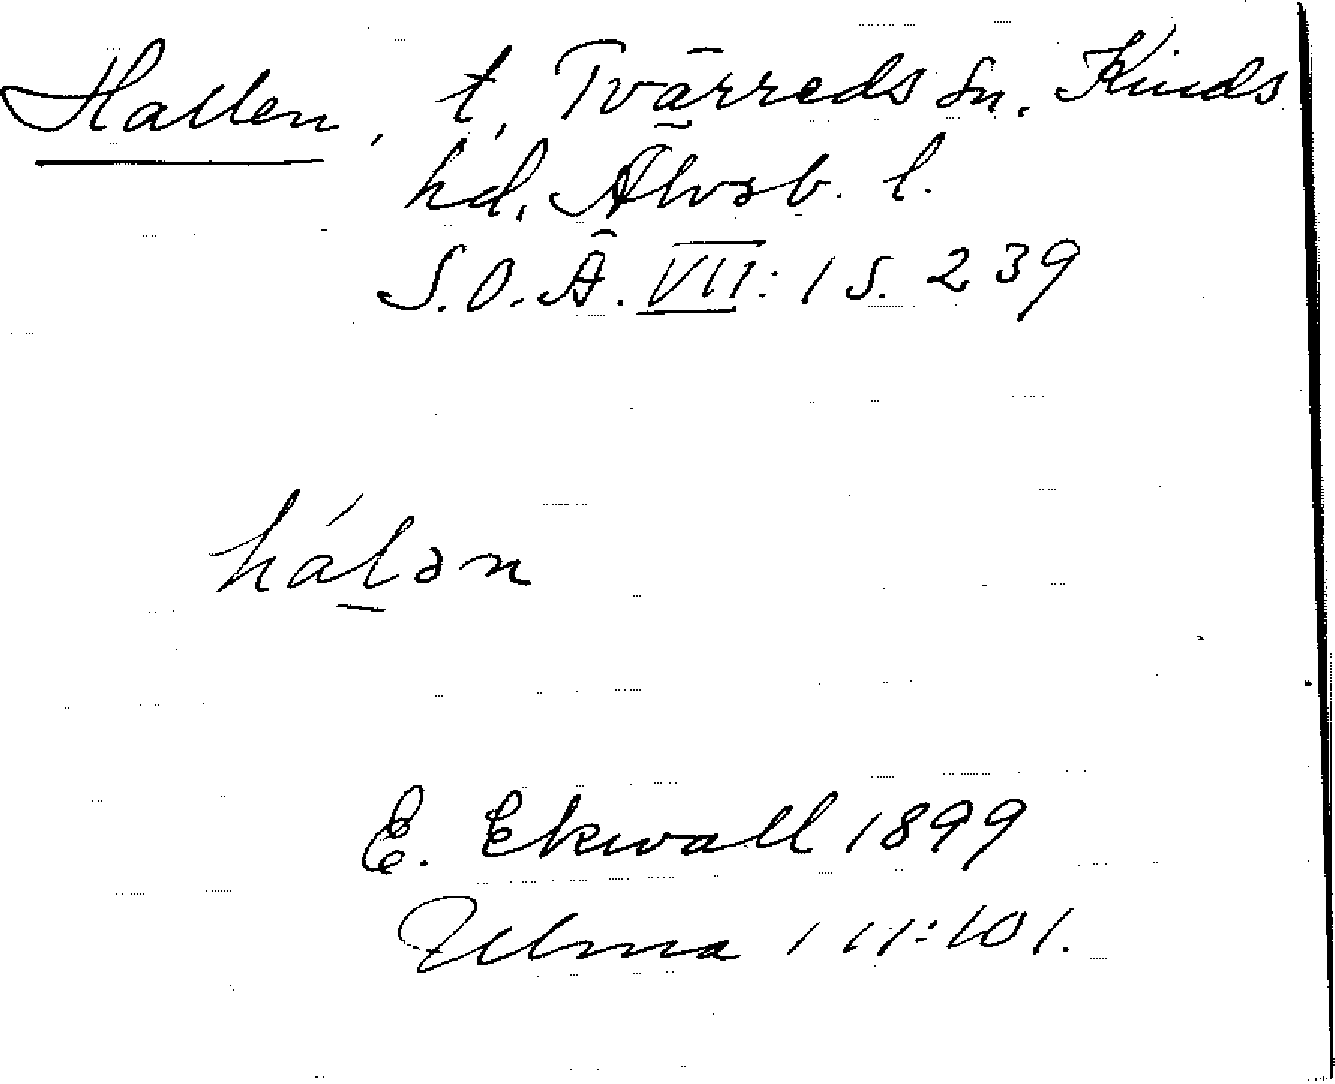 Hallen, t, Tvärreds sn. Kinds
hd, Älvsb. l.
S.O.Ä. VII:1 S. 239
hálən
E. Ekwall 1899
Ulma 111:101.